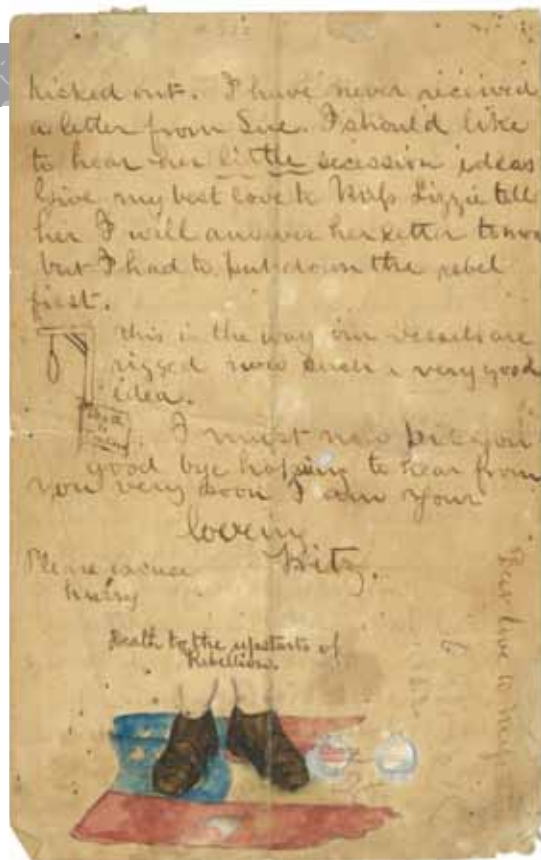 kicked out. I have never received
a letter from Sue. I should like
to hear her little secession ideas
Give my best love to Miss Lizzie tell
her I will answer her letter
but I had to put down the rebel
first.
this is the way our vessels are
rigged now such a very good
idea.
Death
to
I must now bid you
good bye hoping to hear from
you very soon I am your
loving
Please excuse
hurry
Death to the upstarts of
Rebellion.
love to